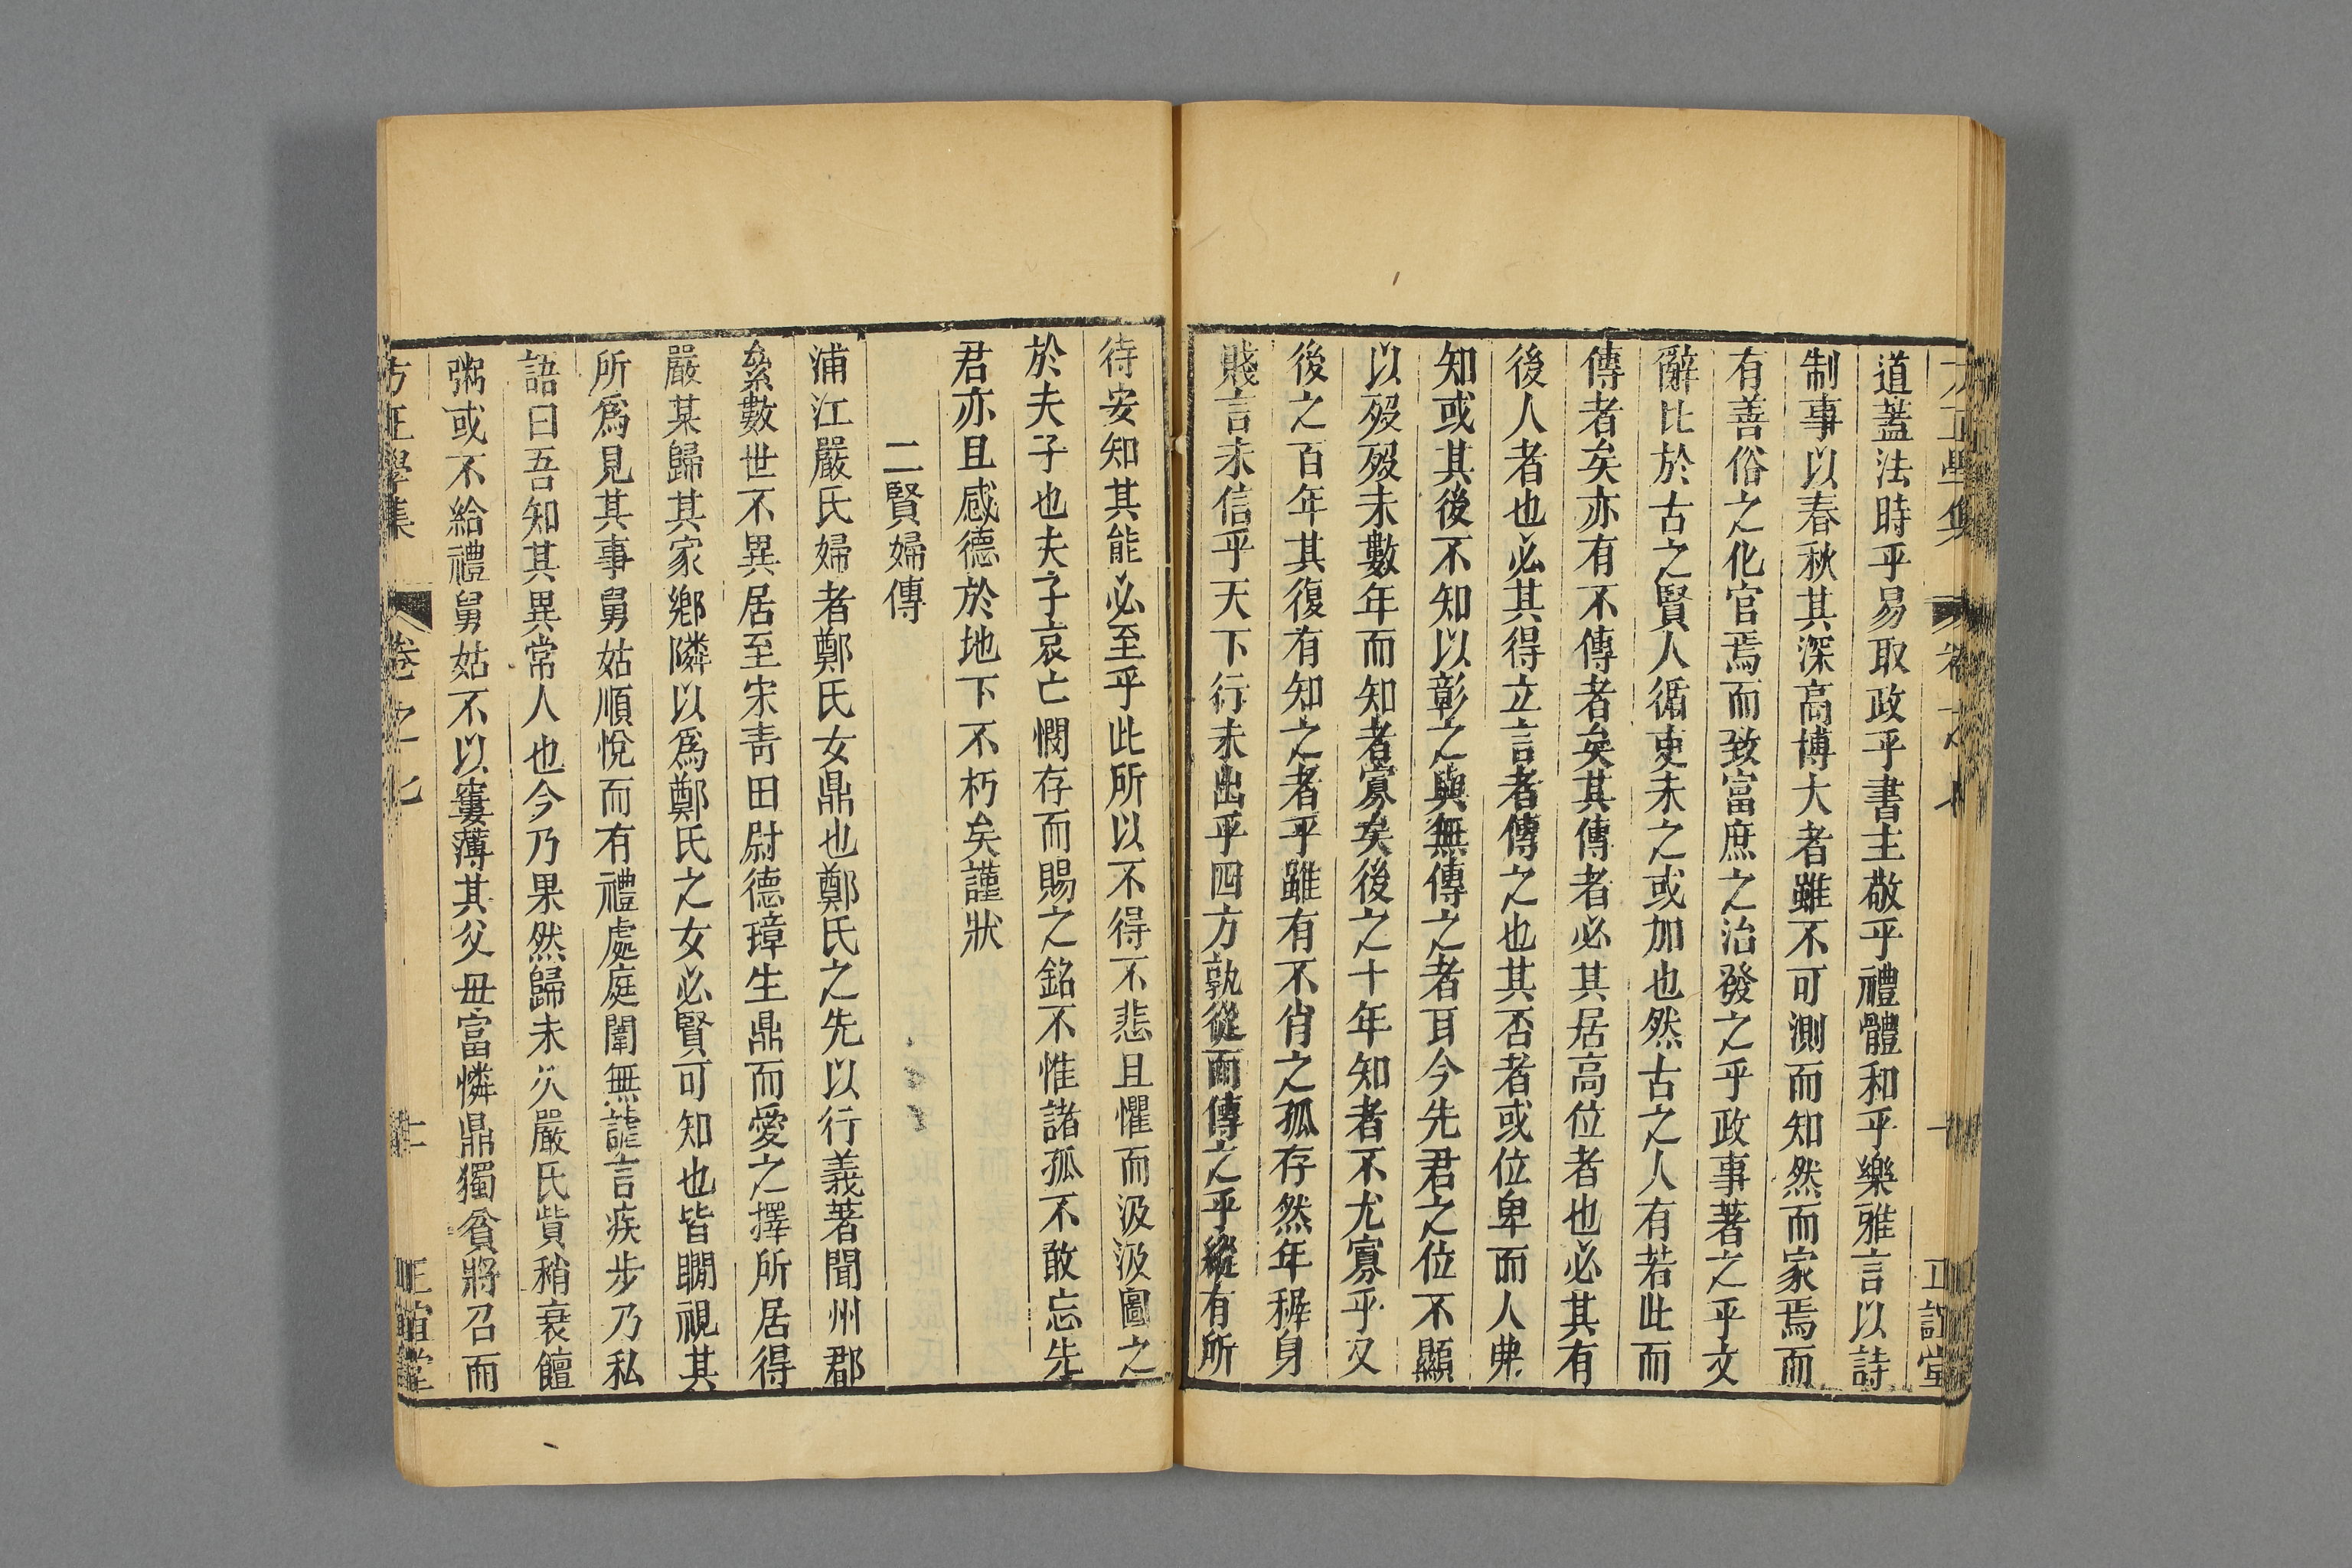 道蓋法時乎易取政乎書主敬乎禮體和乎樂雅言以詩
制事以春秋其深高博大者雖不可測而知然而家焉而
有善俗之化官焉而致富庶之治發之乎政事著之乎文
辭比於古之賢人循吏未之或加也然古之人有若此而
傳者矣亦有不傳者矣其傳者必其居高位者也必其有
後人者也必其得立言者傳之也其否者或位卑而人弗
知或其後不知以彰之與無傳之者耳今先君之位不顯
以歿歿未數年而知者寡矣後之十年知者不尤寡乎又
後之百年其復有知之者乎雖有不肖之孤存然年穉身
賤言未信乎天下行未出乎四方孰從而傳之乎縱有所
待安知其能必至乎此所以不得不悲且懼而汲汲圖之
於夫子也夫子哀亡憫存而賜之銘不惟諸孤不敢忘先
君亦且感德於地下不朽矣謹狀
二賢婦傳
浦江嚴氏婦者鄭氏女鼎也鄭氏之先以行義著聞州郡
絫數世不異居至宋青田尉德璋生鼎而愛之擇所居得
嚴某歸其家鄉隣以爲鄭氏之女必賢可知也皆瞯視其
所爲見其事舅姑順悅而有禮處庭闈無讙言疾步乃私
語曰吾知其異常人也今乃果然歸未久嚴氏貲稍衰饘
粥或不給禮舅姑不以窶薄其父毋富憐鼎獨貧將召而
方正學集 卷之七 十一 正誼堂